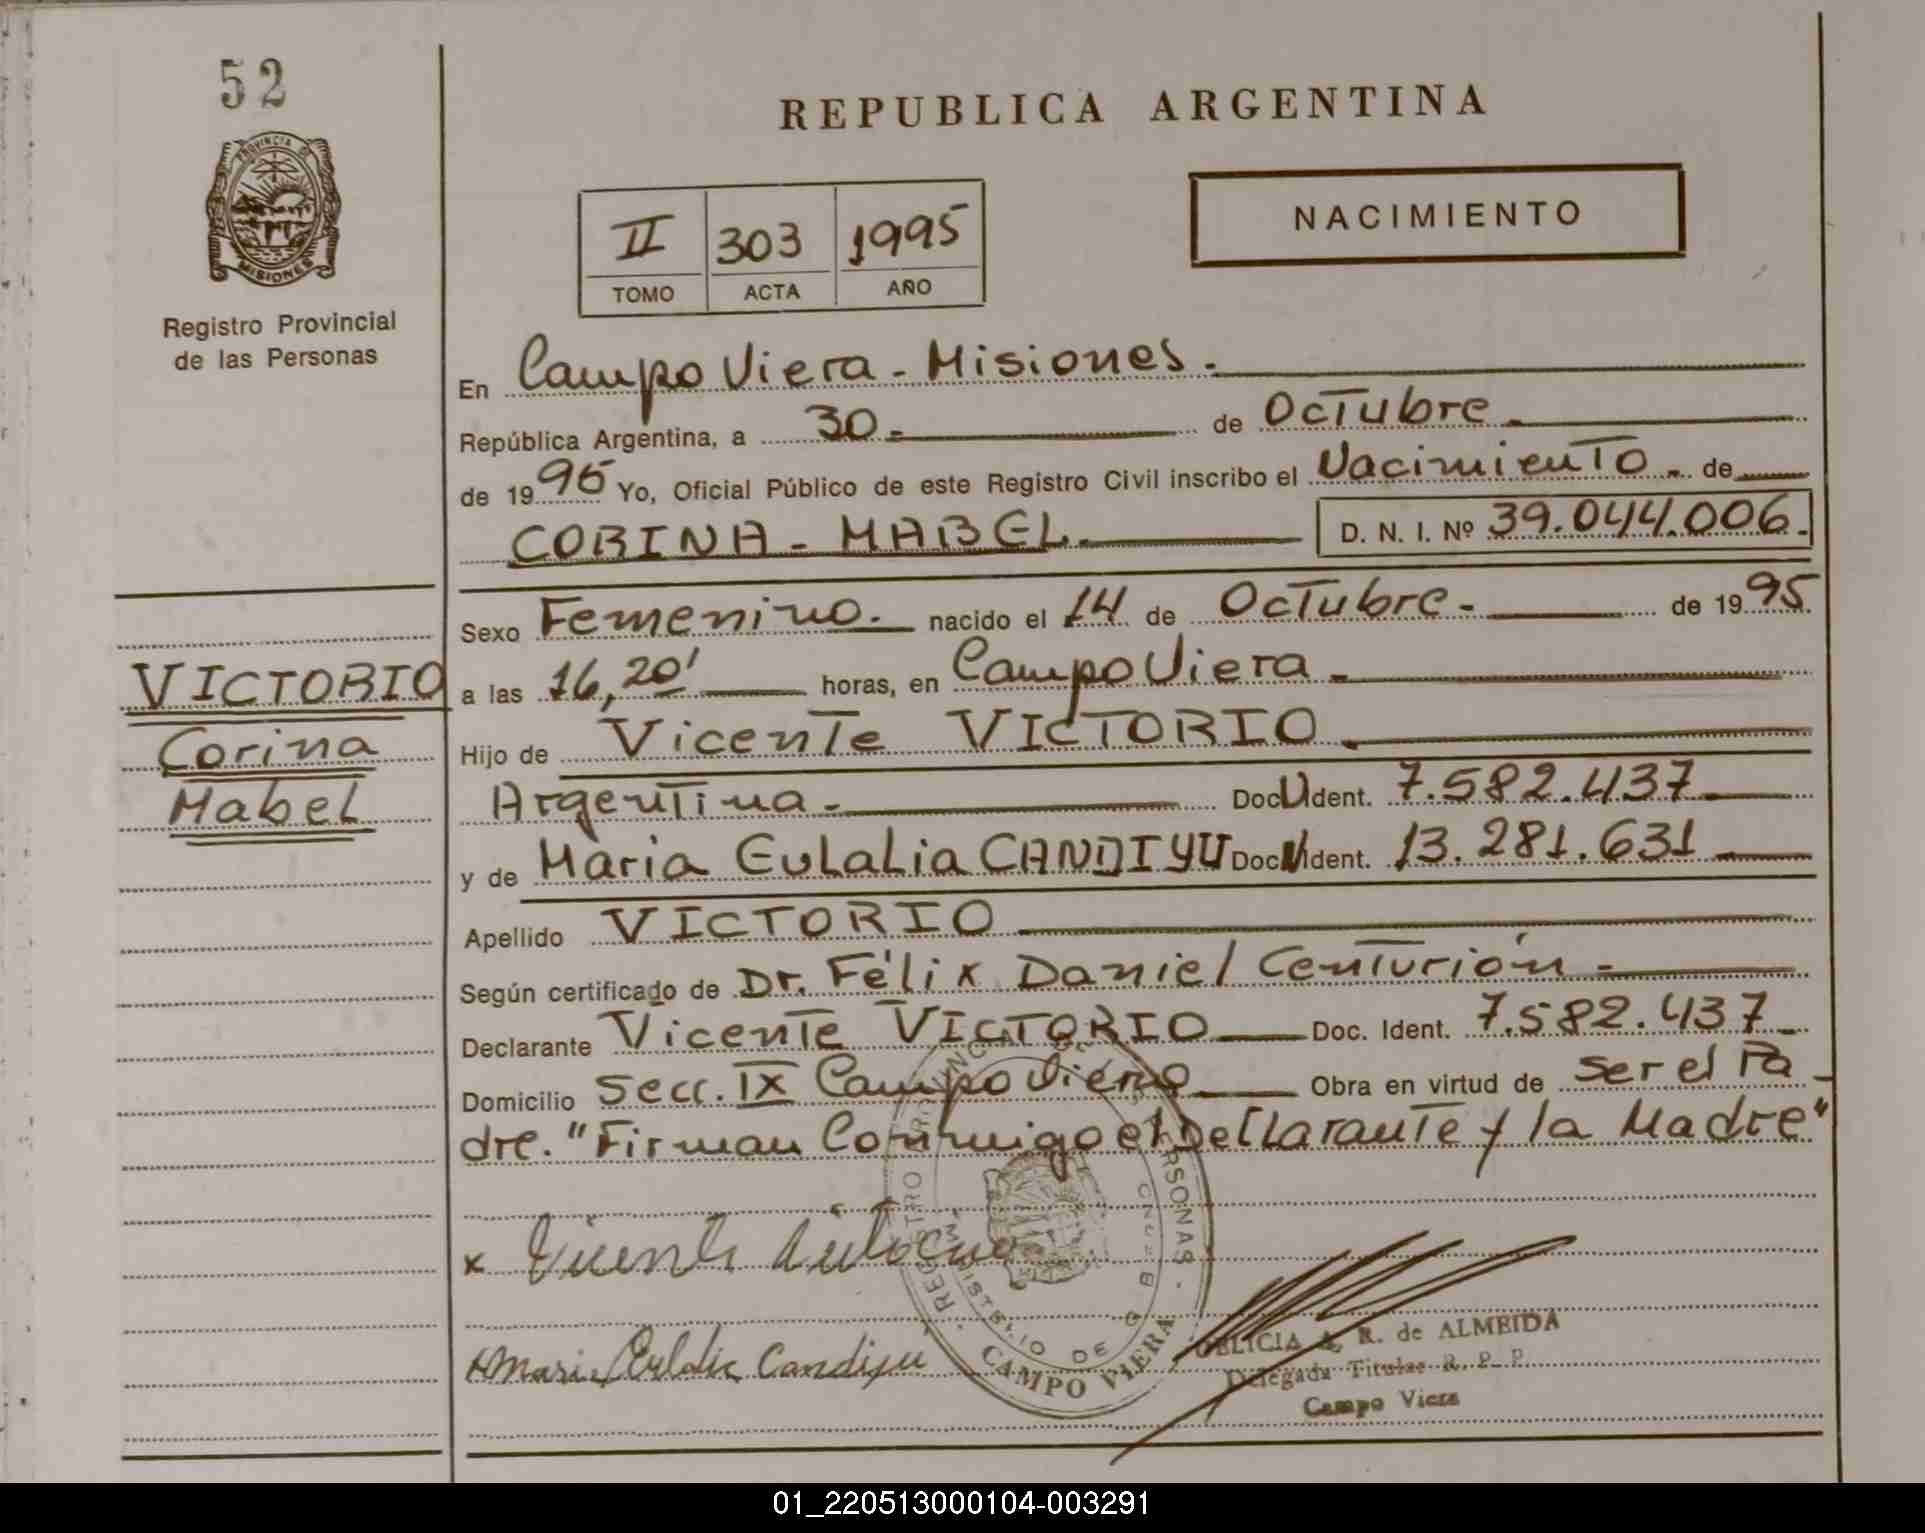 52
REPUBLICA ARGENTINA
PROVINCIA DE
MISIONES
Registro Provincial
de las Personas
II 303 1995
TOMO ACTA AÑO
NACIMIENTO
En Campo Viera - Misiones.
República Argentina, a 30.- de Octubre.
de 1995 Yo, Oficial Público de este Registro Civil inscribo el Nacimiento.- de
CORINA - MABEL. D. N. I. Nº 39.044.006.
Sexo Femenino. nacido el 14 de Octubre.- de 1995
VICTORIO
a las 16,20' horas, en Campo Viera.
Corina
Hijo de Vicente VICTORIO.
Mabel
Argentina.- Doc U Ident. 7.582.437
y de Maria Eulalia CANDIYU Doc U Ident. 13.281.631
Apellido VICTORIO
Según certificado de Dr. Félix Daniel Centurión.-
Declarante Vicente VICTORIO Doc. Ident. 7.582.437
Domicilio Secc. IX Campo Viera Obra en virtud de ser el Pa-
dre. "Firman Conmigo el Declarante y la Madre"
x Vicente Victorio
x Maria Eulalia Candiyu
CAMPO VIERA
A. R. de ALMEIDA
Delegada Titular R. P. P.
Campo Viera
01_220513000104-003291